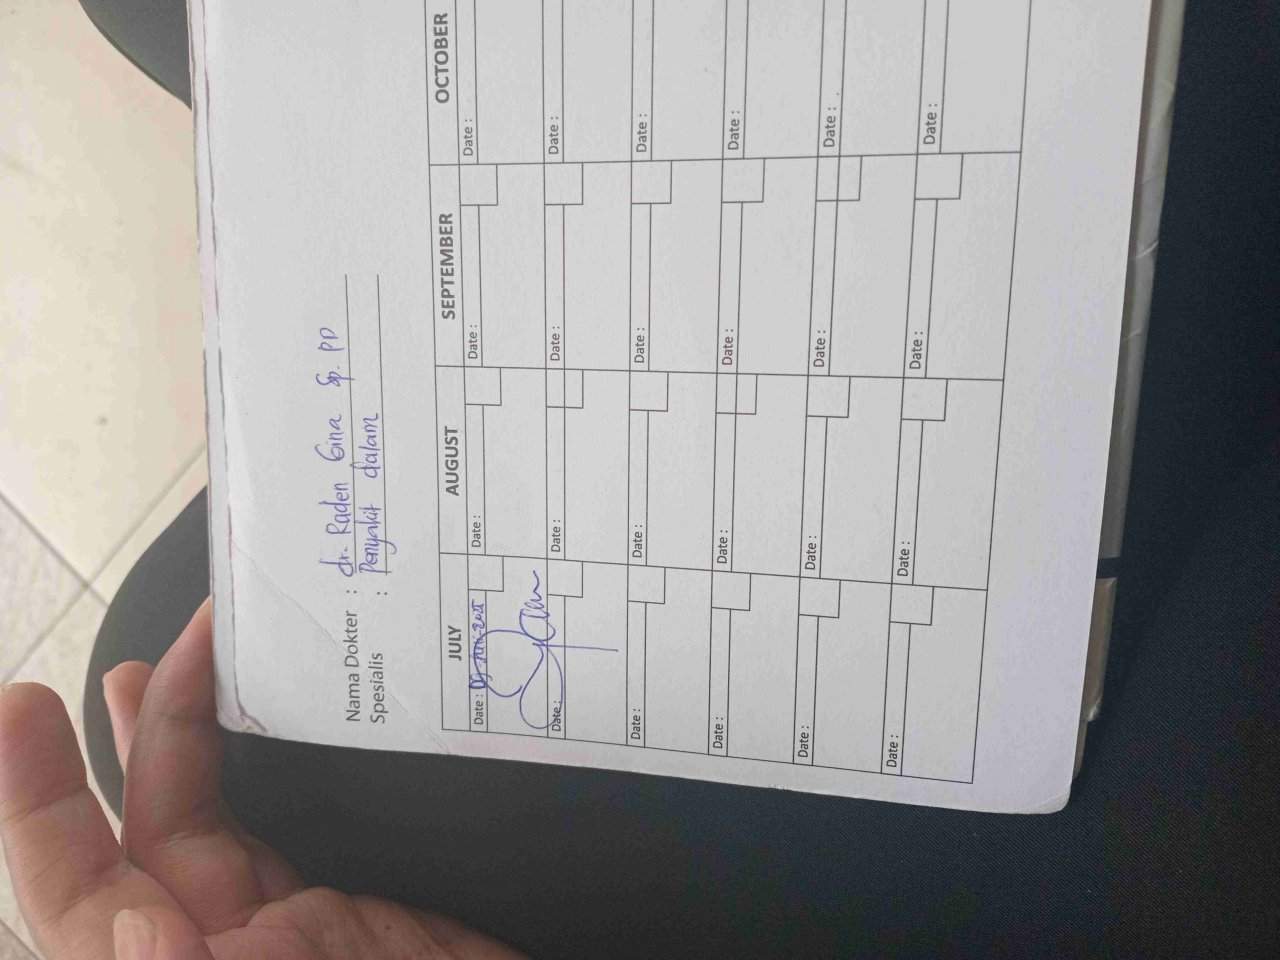 Nama Dokter : dr. Raden Gina Sp. PD
Spesialis : Penyakit dalam
JULY AUGUST SEPTEMBER OCTOBER
Date : Date : Date : Date :
Date : Date : Date : Date :
Date : Date : Date : Date :
Date : Date : Date : Date :
Date : Date : Date : Date :
Date : Date : Date : Date :